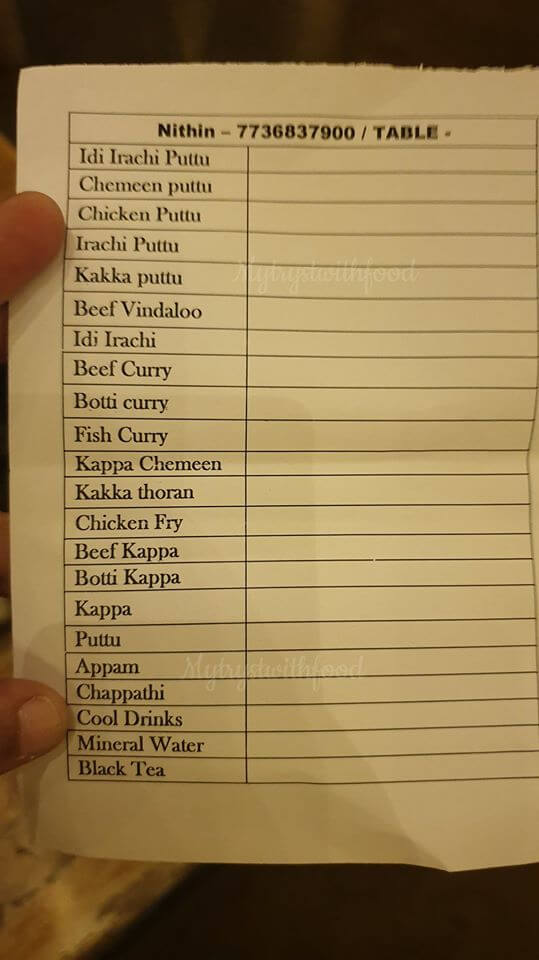 Nithin – 7736837900 / TABLE -
Idi Irachi Puttu
Chemeen puttu
Chicken Puttu
Irachi Puttu
Mytrystwithfood
Kakka puttu
Beef Vindaloo
Idi Irachi
Beef Curry
Botti curry
Fish Curry
Kappa Chemeen
Kakka thoran
Chicken Fry
Beef Kappa
Botti Kappa
Kappa
Puttu
Appam
Mytrystwithfood
Chappathi
Cool Drinks
Mineral Water
Black Tea